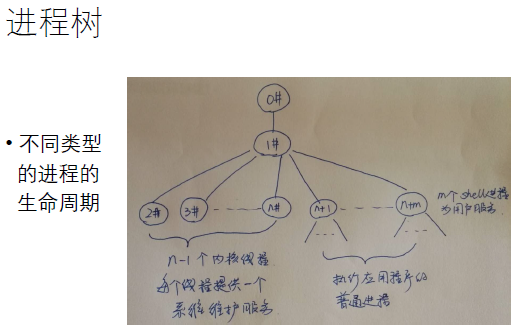 进程树
• 不同类型
的进程的
生命周期
0#
1#
2# 3# n# n+1 n+m
m个shell进程
为用户服务.
n-1个内核线程.
每个线程提供一个
系统维护服务
执行应用程序的
普通进程